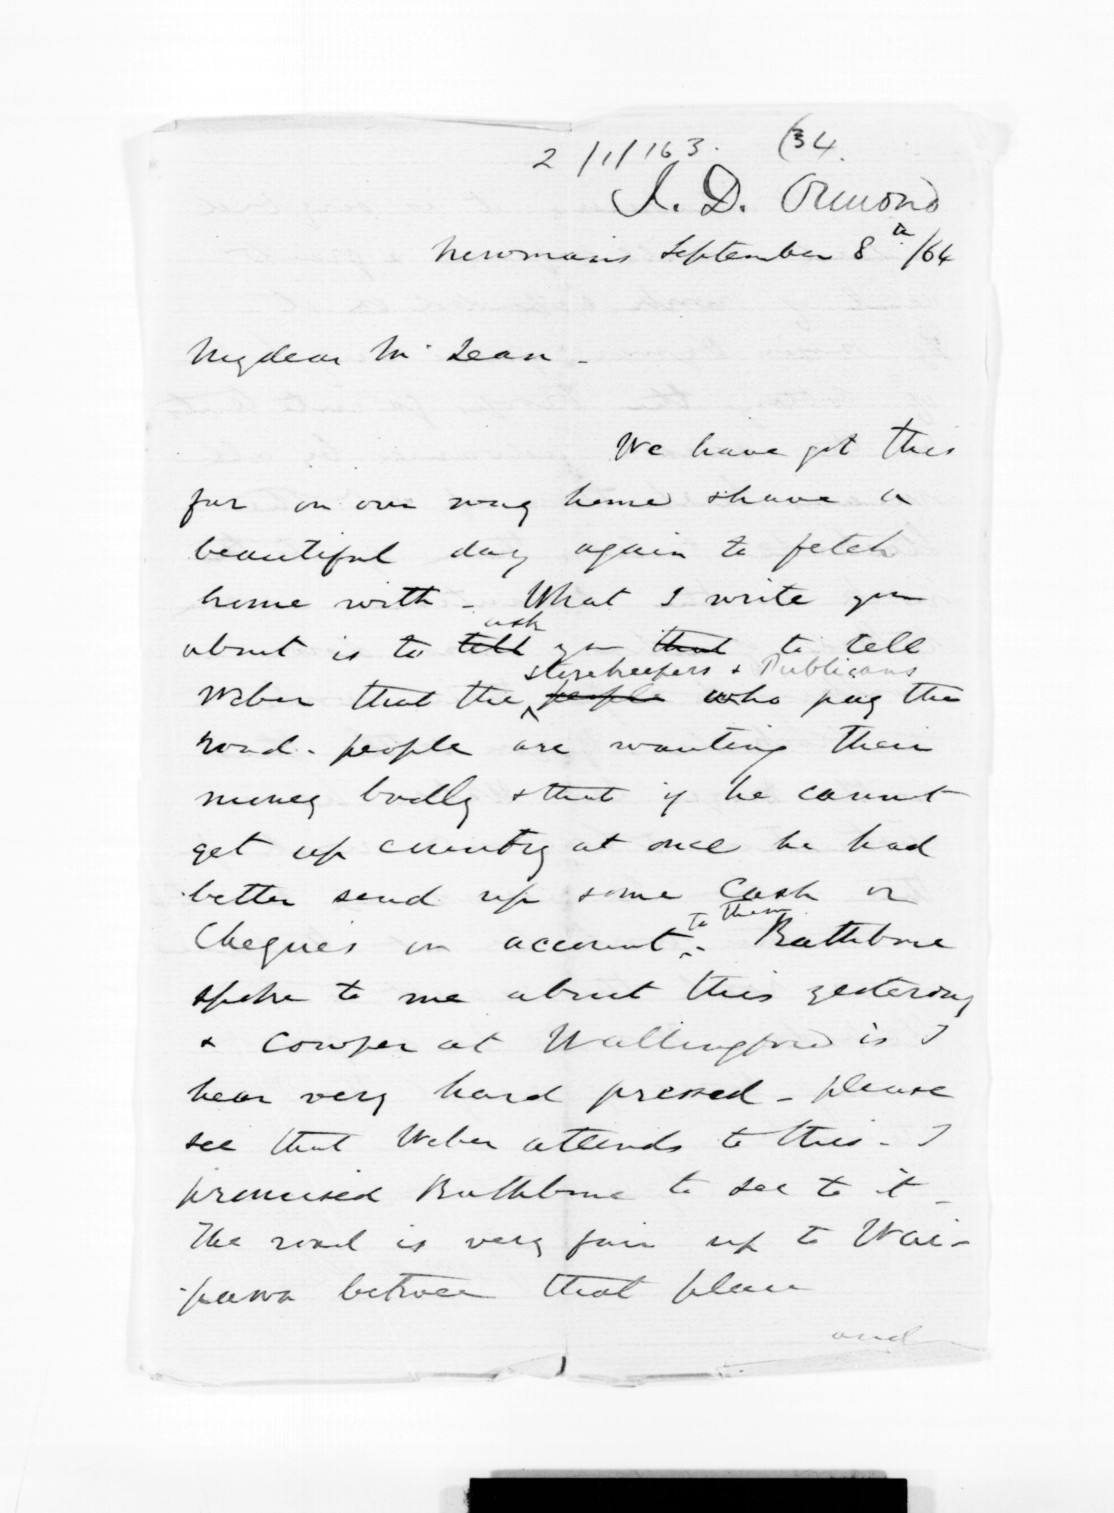 2/1/163. (34.
J. D. Ormond
Newman's September 8th/64
My dear McLean -
We have got this
far on our way home & have a
beautiful day again to fetch
home with - What I write you
about is to tell ask you that to tell
Weber that the people storekeepers & Publicans who pay the
road-people are wanting their
money badly & that if he cannot
get up country at once he had
better send up some Cash or
Cheques on account to them. Rathbone
spoke to me about this yesterday
& Cowper at Wallingford is I
hear very hard pressed - please
see that Weber attends to this - I
promised Rathbone to see to it -
The road is very fair up to Wai-
-pawa between that place
and